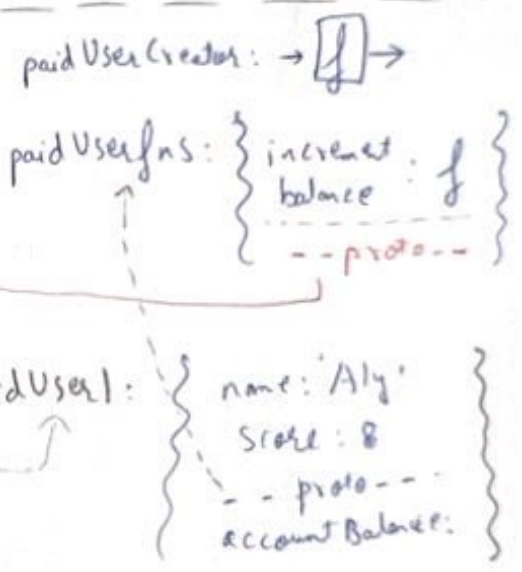 paidUserCreator: → f →
paidUserfns: { increment
balance : f }
--proto--
dUser1: { name: 'Aly'
score: 8
--proto--
accountBalance: }